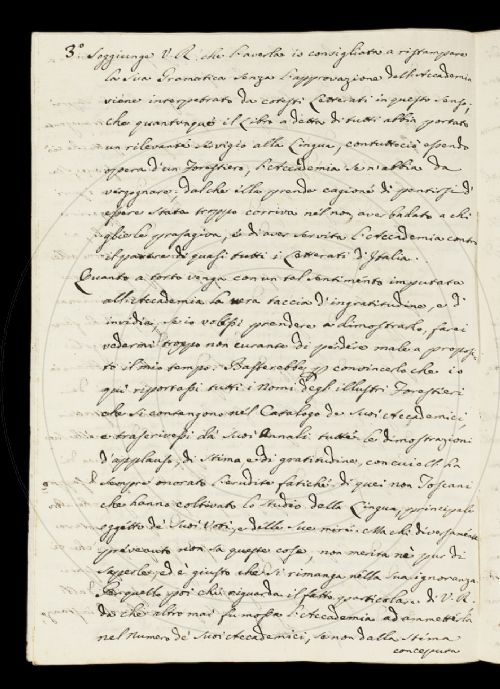 3.° Soggiunge V. R. che l'averla io consigliata a ristampare
la Sua Gramatica Senza l'approvazione dell'Accademia
viene interpetrato da cotesti Letterati in questo Senso,
che quantunque il Libro a detta di tutti abbia portato
un rilevante Servigio alla Lingua, contuttociò essendo
opera d'un Forestiero, l'Accademia Se n'abbia da
vergognare; dal che ella prende cagione di pentirsi d'
essere Stata troppo corriva nel non aver badato a chi
gliele presagiva, e di aver Servita l'Accademia contro
il parere di quasi tutti i Letterati d'Italia.
Quanto a torto venga con un tal Sentimento imputata
all'Accademia la nera taccia d'ingratitudine, e d'
invidia, se io volessi prendere a dimostrarlo, farei
vedermi troppo non curante di perdere male a proposi-
to il mio tempo. Basterebbe p convincerlo che io
quì riportassi tutti i Nomi degl'illustri Forestieri
che Si contengono nel Catalogo de Suoi Accademici,
e trascrivessi da' Suoi Annali tutte le dimostrazioni
d'applauso, di Stima e di gratitudine, con cui ella ha
Sempre onorato l'erudite fatiche di quei non Toscani
che hanno coltivato lo Studio della Lingua, principale
oggetto de' Suoi Voti, e delle Sue mire. Ma chi diversamente
prevenuto non Sa queste cose, non merita nè pur di
Saperle; ed è giusto che Si rimanga nella Sua ignoranza.
Per quello poi che riguarda il fatto particolare di V. R.
da che altro mai fu mossa l'Accademia ad ammetterla
nel Numero de' Suoi Accademici, Se non dalla Stima
conceputa